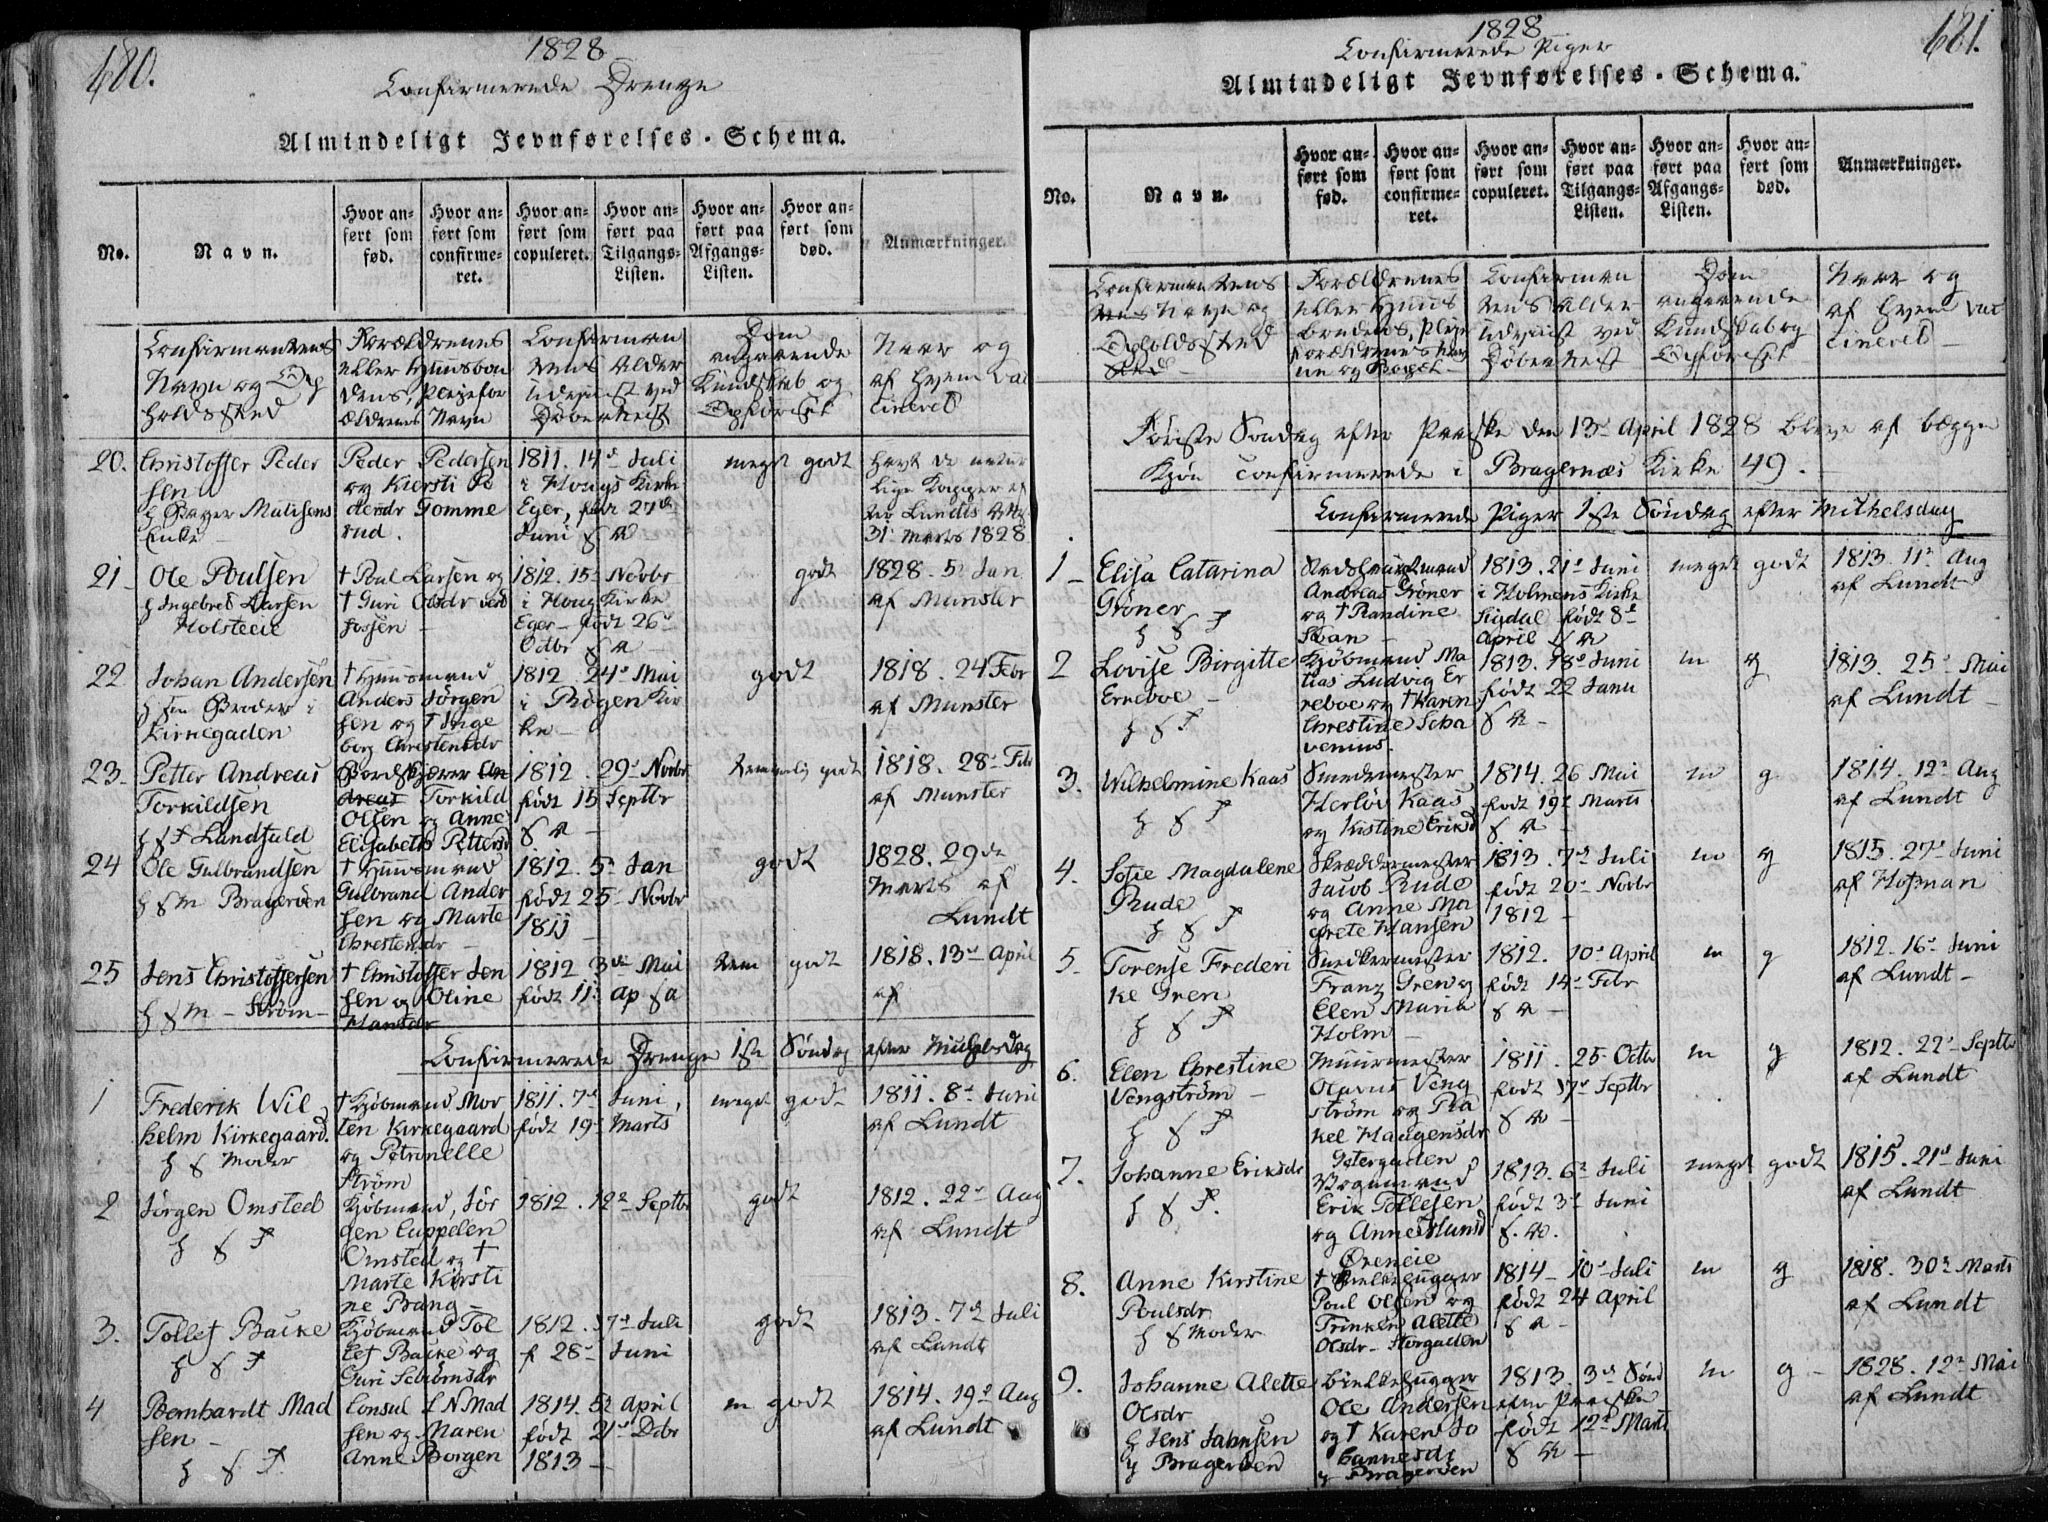 680.
1828
Confirmerede Drenge
Almindeligt Jevnførelses-Schema.
No.
Navn.
Hvor anført som fød.
Hvor anført som confirmeret.
Hvor anført som copuleret.
Hvor anført paa Tilgangs-Listen.
Hvor anført paa Afgangs-Listen.
Hvor anført som død.
Anmærkninger.
Confirmantens
Navn og Op
holdssted
Forældrenes
eller Huusbon
dens, Plejefor
ældrenes Navn
Confirman
tens Alder
udviist ved
Døbeattest
Dom
angaaende
Kundskab og
Opførsel
Naar og
af hvem vac
cineret
20.
Christoffer Peder
sen
Enke
Peder Pedersen
og Kiersti Pe
dersdr Gomme
rud.
1811. 14de Juli
i Hougs Kirke
Eger, født 27de
Juni
meget godt
havt de natur
lige Kopper
31 Marts 1828
21
Ole Poulsen
h Ingebret Larsen
† Poul Larsen og
† Guri Olsdr ved
fossen
1812. 15 Novbr
i Houg Kirke
Eger - født 26
Octbr
godt
1828. 5 Jan
af Munster
22
Johan Andersen
h sin Broder i
Kirkegaden
† Huusmand
Anders Jørgen
sen og † Inge
borg Christensdr
1812. 24 Mai
i Røgen Kir
ke
godt
1818. 24 Febr
af Munster
23
Petter Andreas
Torkildsen
h s F Landfald
Bordskjærer An
dreas Torkild
Olsen og Anne
Elisabeth Pettersd
1812. 29 Novbr
født 15 Septbr
temmelig godt
1818. 28 Febr
af Munster
24
Ole Gulbrandsen
h s M Bragerøen
† Huusmand
Gulbrand Ander
sen og Marte
Christensdr
1812. 5 Jan
født 25 Novbr
1811
godt
1828. 29de
Marts af
Lundt
25
Jens Christoffersen
h s M - Strøm
† Christoffer Jen
sen og Oline
Hansdr
1812 3de Mai
født 11 Ap s a
tem godt
1818. 13 April
af
Confirmerede Drenge 1ste Søndag efter Michelsdag
1
Frederik Wil
helm Kirkegaard.
h s Moder
† Kjøbmand Mor
ten Kirkegaard
og Petronelle
Strøm
1811. 7 Juni,
født 19 Marts
meget godt
1811. 8 Juni
af Lundt
2
Jørgen Omsted
h s F
Kjøbmand, Jør
gen Cappelen
Omsted og †
Marte Kirsti
ne Bang
1812. 12 Septbr
godt
1812. 22 Aug
af Lundt
3.
Tollef Backe
h s F
Kjøbmand Tol
lef Backe og
1812. 17 Juli
f 28 Juni
godt
1813. 7 Juli
af Lundt
4
Bernhardt Mad
sen
h s F.
Consul Mad
sen og Maren
Anne Borgen
1814. 5 April
født 21 Dcbr
1813
m godt
1814. 19 Aug
af Lundt
681.
1828
Confirmerede Piger
Almindeligt Jevnførelses-Schema.
No.
Navn.
Hvor anført som fød.
Hvor anført som confirmeret.
Hvor anført som copuleret.
Hvor anført paa Tilgangs-Listen.
Hvor anført paa Afgangs-Listen.
Hvor anført som død.
Anmærkninger.
Confirmantens
Navn og
Opholdssted
Forældrenes
eller Huus
bondens, Pleje
forældrenes Nav
ne og Bopæl
Confirman
tens Alder
udviist ved
Døbeattest
Dom
angaaende
Kundskab og
Opførsel
Naar og
af hvem vac
cineret
Første Søndag efter Paaske den 13 April 1828 bleve af begge
Kjøn confirmerede i Bragernæs Kirke 49.
Confirmerede Piger 1ste Søndag efter Mikkelsdag
1
Elisa Catarina
Grøner
h s F
Andreas Grøner
og † Randine
1813. 21 Juni
i Holmens Kirke
Sigdal født 8
April s a
meget godt
1813. 11 Aug
af Lundt
2
Lovise Birgitte
Erreboe
h s F
Kjøbmand Ma
tias Ludvig Er
reboe og † Karen
Christine Scha
venius.
1813. 18 Juni
født 22 Janu
s a
m g
1813. 25 Mai
af Lundt
3.
Wilhelmine Kaas
h s F
Smedemester
Herløv Kaas
og Kistine Eriksd
1814. 26 Mai
født 19 Marts
s a
m g
1814. 12 Aug
af Lundt
4.
Sofie Magdalene
Rude
h s F
Skreddermester
Jacob Rude
og Anne Ma
grete Hansen
1813. 7 Juli
født 20 Novbr
1812
m g
1815. 27 Juni
af Hofman
5
Torense Frederi
ke Gren
h s F
Snedkermester
Franz Gren og
Elen Maria
Holm
1812. 10 April
født 14 Febr
s a
m g
1812. 16 Juni
af Lundt
6.
Elen Christine
Vengstrøm
h s F
Muurmester
Olavus Veng
strøm og Ra
kel Haagensdr
1811. 25 Octbr
født 17 Septbr
s a
m g
1812. 22 Septbr
af Lundt
7.
Johanne Eriksdr
h s F.
Vognmand
Erik Tollefsen
1813. 6 Juli
født 3 Juni
s. a.
meget godt
1815. 21 Juni
af Lundt
8.
Anne Kirstine
Poulsdr
h s Moder
† Bielkehugger
Poul Olsen og
Trinken Alette
Olsdr - Storgaden
1814 - 10 Juli
født 24 April
s a
m g
1818. 30 Marts
af Lundt
9.
Johanne Alette
Olsdr
h Jens Jahnsen
Bragerøen
Bielkehugger
Ole Andersen
og † Karen Jo
hannesdr
Bragerøen
1813. 3 Sønd
efter Paaske
født 12 Marts
s a
m g
1828. 12 Mai
af Lundt